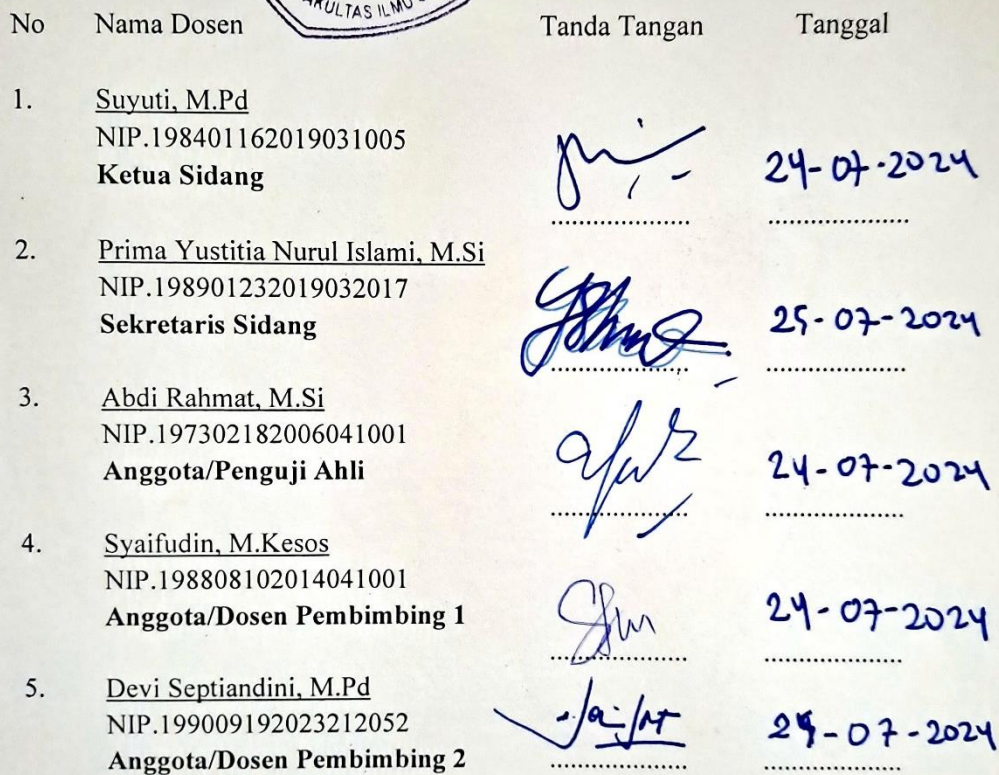 FAKULTAS ILMU
No Nama Dosen Tanda Tangan Tanggal
1. Suyuti, M.Pd
NIP.198401162019031005
Ketua Sidang
24-07-2024
2. Prima Yustitia Nurul Islami, M.Si
NIP.198901232019032017
Sekretaris Sidang
25-07-2024
3. Abdi Rahmat, M.Si
NIP.197302182006041001
Anggota/Penguji Ahli
24-07-2024
4. Syaifudin, M.Kesos
NIP.198808102014041001
Anggota/Dosen Pembimbing 1
24-07-2024
5. Devi Septiandini, M.Pd
NIP.199009192023212052
Anggota/Dosen Pembimbing 2
-07-2024